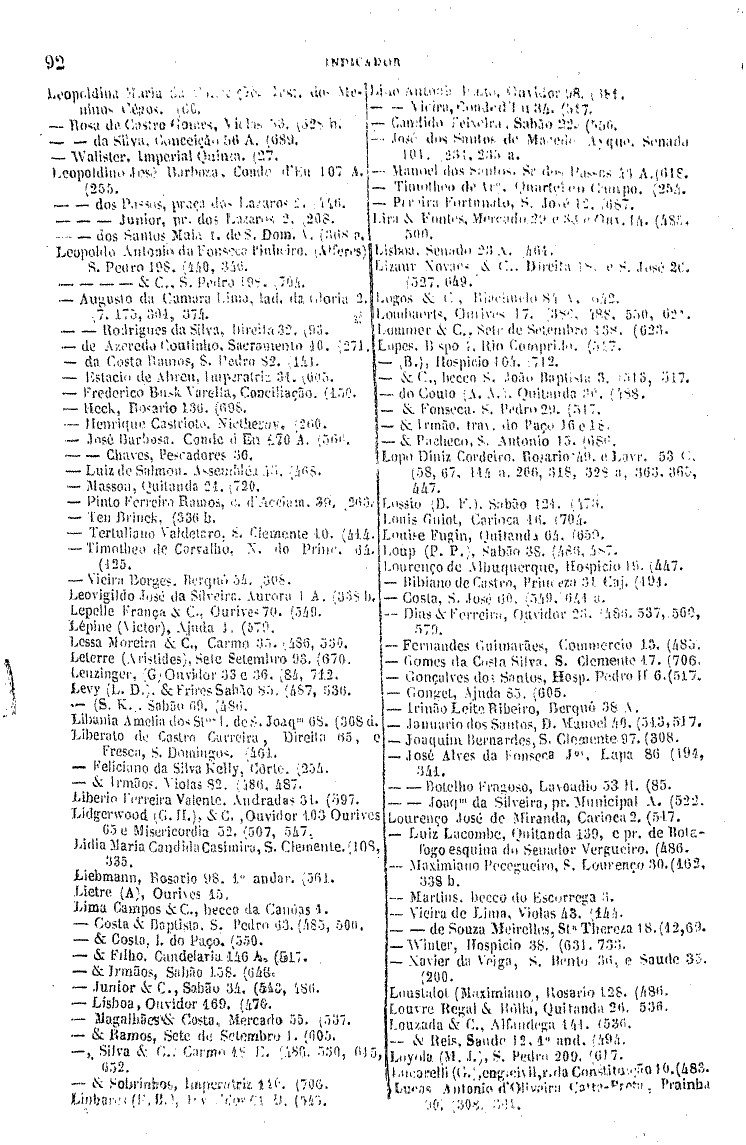 92
INDICADOR
Leopoldina Maria da Inst. dos Me-
ninos Cégos. (60.
— Rosa de Castro Gomes, Violas 53. (328 b.
— — da Silva, Conceição 56 A. (689.
— Walister, Imperial Quinta. (27.
Leopoldino José Barboza, Conde d'Eu 107 A.
(255.
— — dos Passos, praça dos Lazaros 2. (446.
— — — Junior, pr. dos Lazaros 2. (208.
— — dos Santos Maia t. de S. Dom. A. (368 a.
Leopoldo Antonio da Fonseca Pinheiro. (Alferes)
S. Pedro 198. (440, 346.
— — — — & C., S. Pedro 198. (704.
— Augusto da Camara Lima, lad. da Gloria 2.
(7, 175, 301, 374.
— — Rodrigues da Silva, Direita 32. (93.
— de Azeredo Coutinho, Sacramento 40. (271.
— da Costa Ramos, S. Pedro 82. (141.
— Estacio de Abreu, Imperatriz 31. (605.
— Frederico Busk Varella, Conciliação. (150.
— Heck, Rosario 136. (698.
— Henrique Castrioto, Nictheroy. (260.
— José Barbosa. Conde d'Eu 170 A. (566.
— — Chaves, Pescadores 36.
— Luiz de Salmon. Assembléa 43. (468.
— Massoa, Quitanda 24. (720.
— Pinto Ferreira Ramos, c. d'Acclam. 39. (263.
— Ten Brinck, (336 b.
— Tertuliano Valdetaro, S. Clemente 40. (414.
— Timotheo de Carvalho, N. do Princ. 64.
(125.
— Vieira Borges. Berquó 54. (308.
Leovigildo José da Silveira. Aurora 1 A. (338 b.
Lepelle França & C., Ourives 70. (549.
Lépine (Victor), Ajuda 1. (579.
Lessa Moreira & C., Carmo 35. (486, 530.
Leterre (Aristides), Sete Setembro 93. (670.
Leuzinger, (G) Ouvidor 33 e 36. (84, 712.
Levy (L. D.). & Frires Sabão 85. (487, 536.
— (S. K.). Sabão 69. (486.
Libania Amelia dos Stos l. de S. Joaqm 68. (308 d.
Liberato de Castro Carreira, Direita 65, e
Fresca, S. Domingos. (461.
— Feliciano da Silva Kelly, Côrte. (254.
— & Irmãos. Violas 82. (486, 487.
Liberio Ferreira Valente. Andradas 31. (597.
Lidgerwood (G. H.), & C., Ouvidor 103 Ourives
65 e Misericordia 52. (507, 547.
Lidia Maria Candida Casimira, S. Clemente. (108,
335.
Liebmann, Rosario 98. 1º andar. (561.
Lietre (A), Ourives 45.
Lima Campos & C., becco da Canôas 1.
— Costa & Baptista. S. Pedro 63. (485, 500.
— & Costa, l. do Paço. (550.
— & Filho. Candelaria 46 A. (517.
— & Irmãos, Sabão 158. (646.
— Junior & C., Sabão 34. (543, 486.
— Lisboa, Ouvidor 169. (476.
— Magalhães & Costa, Mercado 55. (537.
— & Ramos, Sete de Setembro 1. (605.
—, Silva & C. Carmo (486, 530, 615,
652.
— & Sobrinhos, Imperatriz 116. (706.
Linhares (F. B.),
Lino Antonio Ouvidor 98. (484.
— — Vieira, Conde d'Eu 34. (517.
— Candido Teixeira, Sabão 22. (556.
— José dos Santos de Macedo Ayque, Senado
101. (231, 235 a.
— Manoel dos Santos. Sr dos Passos 43 A. (618.
— Timotheo de Quartel en Campo. (254.
— Pereira Fortunato, S. José 12. (687.
Lira & Fontes, Mercado 29 e 33 e Ouv. 14. (485,
500.
Lisboa. Senado 23 A. (464.
Lizaur Novaes & C.. Direita 18. e S. José 26.
(527, 649.
Logos & C, Riachuelo 84 A. (642.
Lombaerts, Ourives 17. (386, 488, 550, 621.
Lommer & C., Sete de Setembro 138. (623.
Lopes. Bispo 4, Rio Comprido. (517.
— (B.), Hospicio 104. (712.
— & C., becco S. João Baptista 3. (513, 517.
— do Couto (A. A.). Quitanda 36. (488.
— & Fonseca. S. Pedro 29. (517.
— & Irmão. trav. do Paço 16 e 18.
— & Pacheco, S. Antonio 15. (686.
Lopo Diniz Cordeiro. Rosario 49. e Lavr. 53 C.
(58, 67, 144 a. 206, 318, 328 a, 363. 365,
447.
Lossio (D. F.). Sabão 124. (476.
Louis Guiot, Carioca 46. (704.
Louise Fugin, Quitanda 64. (659.
Loup (P. P.), Sabão 38. (486, 487.
Lourenço de Albuquerque, Hospicio 19. (447.
— Bibiano de Castro, Princeza 31 Caj. (194.
— Costa, S. José 60. (549. 641 a.
— Dias & Ferreira, Ouvidor 25. (486. 537, 560,
579.
— Fernandes Guimarães, Commercio 13. (485.
— Gomes da Costa Silva, S. Clemente 17. (706.
— Gonçalves dos Santos, Hosp. Pedro II 6. (517.
— Gonget, Ajuda 85. (605.
— Irinão Leite Ribeiro, Berquó 38 A.
— Januario dos Santos, D. Manoel 40. (513, 517.
— Joaquim Bernardes, S. Clemente 97. (308.
— José Alves da Fonseca Jor, Lapa 86 (194,
341.
— — Botelho Fragoso, Lavradio 53 H. (85.
— — Joaqm da Silveira, pr. Municipal A. (522.
Lourenço José de Miranda, Carioca 2. (517.
— Luiz Lacombe, Quitanda 139, e pr. de Bota-
fogo esquina do Senador Vergueiro. (486.
— Maximiano Pecegueiro, S. Lourenço 30. (162,
338 b.
— Martins, becco do Escorrega 3.
— Vieira de Lima, Violas 43. (144.
— — de Souza Meirelles, Sta Thereza 18. (12, 69.
— Winter, Hospicio 38. (631, 733.
— Xavier da Veiga, S. Bento 36, e Saude 35.
(200.
Loustalot (Maximiano), Rosario 128. (486.
Louvre Regal & Rölla, Quitanda 26. 536.
Louzada & C., Alfandega 141. (536.
— & Reis, Saude 12, 1º and. (494.
Loyola (M. J.), S. Pedro 209. (617.
Lucarelli (G.), eng. civil, r. da Constituição 10. (483.
Lucas Antonio d'Oliveira Catta-Preta, Prainha
90. (308, 331.